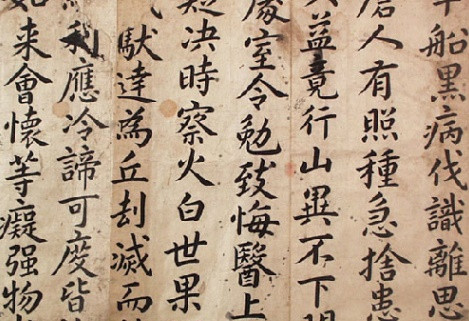 船黑病伐識離思
人有照種急捨患
益竟行山異不下
處室令勉致悔醫上
短决時察火白世果
馱達為丘刦滅而
利應冷諦可度皆
来會懷等癡强物